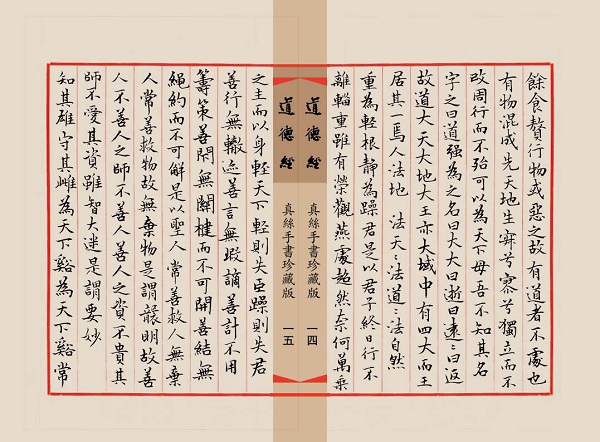 餘食贅行物或惡之故有道者不處也
有物混成先天地生寂兮寥兮獨立而不
改周行而不殆可以為天下母吾不知其名
字之曰道强為之名曰大大曰逝曰遠〻曰返
故道大天大地大王亦大域中有四大而王
居其一焉人法地 法天〻法道〻法自然
重為輕根靜為躁君是以君子終日行不
離輜重雖有榮觀燕處超然奈何萬乘
道德經 真絲手書珍藏版 一四
道德經 真絲手書珍藏版 一五
之主而以身輕天下輕則失臣躁則失君
善行無轍迹善言無瑕謫善計不用
籌策善閉無關楗而不可開善結無
繩約而不可解是以聖人常善救人無棄
人常善救物故無棄物是謂襲明故善
人不善人之師不善人善人之資不貴其
師不愛其資雖智大迷是謂要妙
知其雄守其雌為天下谿為天下谿常